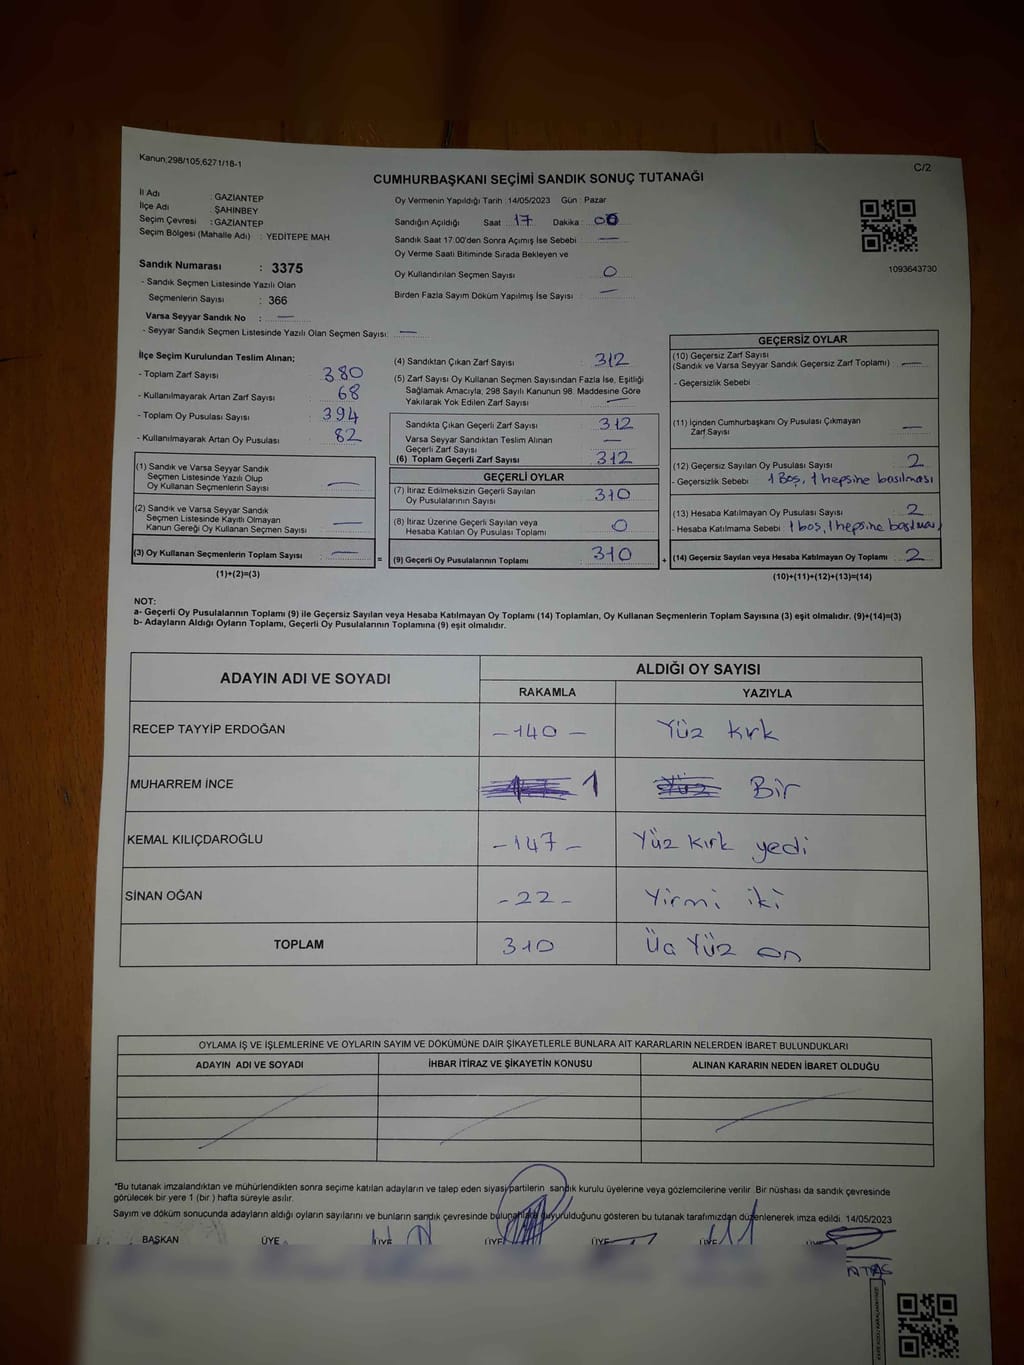 Kanun;298/105,6271/18-1
C/2
CUMHURBAŞKANI SEÇİMİ SANDIK SONUÇ TUTANAĞI
İl Adı : GAZİANTEP
İlçe Adı : ŞAHİNBEY
Seçim Çevresi : GAZİANTEP
Seçim Bölgesi (Mahalle Adı) : YEDİTEPE MAH
Sandık Numarası : 3375
- Sandık Seçmen Listesinde Yazılı Olan
Seçmenlerin Sayısı : 366
Varsa Seyyar Sandık No : —
- Seyyar Sandık Seçmen Listesinde Yazılı Olan Seçmen Sayısı: —
Oy Vermenin Yapıldığı Tarih :14/05/2023 Gün : Pazar
Sandığın Açıldığı Saat : 17 Dakika : 00
Sandık Saat 17.00'den Sonra Açımış İse Sebebi : —
Oy Verme Saati Bitiminde Sırada Bekleyen ve
Oy Kullandırılan Seçmen Sayısı : 0
Birden Fazla Sayım Döküm Yapılmış İse Sayısı : —
1093643730
İlçe Seçim Kurulundan Teslim Alınan;
- Toplam Zarf Sayısı : 380
- Kullanılmayarak Artan Zarf Sayısı : 68
- Toplam Oy Pusulası Sayısı : 394
- Kullanılmayarak Artan Oy Pusulası : 82
(1) Sandık ve Varsa Seyyar Sandık
Seçmen Listesinde Yazılı Olup
Oy Kullanan Seçmenlerin Sayısı —
(2) Sandık ve Varsa Seyyar Sandık
Seçmen Listesinde Kayıtlı Olmayan
Kanun Gereği Oy Kullanan Seçmen Sayısı —
(3) Oy Kullanan Seçmenlerin Toplam Sayısı —
(1)+(2)=(3)
=
(4) Sandıktan Çıkan Zarf Sayısı : 312
(5) Zarf Sayısı Oy Kullanan Seçmen Sayısından Fazla İse, Eşitliği
Sağlamak Amacıyla, 298 Sayılı Kanunun 98. Maddesine Göre
Yakılarak Yok Edilen Zarf Sayısı : —
Sandıkta Çıkan Geçerli Zarf Sayısı : 312
Varsa Seyyar Sandıktan Teslim Alınan
Geçerli Zarf Sayısı : —
(6) Toplam Geçerli Zarf Sayısı : 312
GEÇERLİ OYLAR
(7) İtiraz Edilmeksizin Geçerli Sayılan
Oy Pusulalarının Sayısı : 310
(8) İtiraz Üzerine Geçerli Sayılan veya
Hesaba Katılan Oy Pusulası Toplamı : 0
(9) Geçerli Oy Pusulalarının Toplamı 310
+
GEÇERSİZ OYLAR
(10) Geçersiz Zarf Sayısı
(Sandık ve Varsa Seyyar Sandık Geçersiz Zarf Toplamı) : —
- Geçersizlik Sebebi
(11) İçinden Cumhurbaşkanı Oy Pusulası Çıkmayan
Zarf Sayısı : —
(12) Geçersiz Sayılan Oy Pusulası Sayısı : 2
- Geçersizlik Sebebi : 1 Boş, 1 hepsine basılması
(13) Hesaba Katılmayan Oy Pusulası Sayısı : 2
- Hesaba Katılmama Sebebi : 1 boş, 1 hepsine
(14) Geçersiz Sayılan veya Hesaba Katılmayan Oy Toplamı : 2
(10)+(11)+(12)+(13)=(14)
NOT:
a- Geçerli Oy Pusulalarının Toplamı (9) ile Geçersiz Sayılan veya Hesaba Katılmayan Oy Toplamı (14) Toplamları, Oy Kullanan Seçmenlerin Toplam Sayısına (3) eşit olmalıdır. (9)+(14)=(3)
b- Adayların Aldığı Oyların Toplamı, Geçerli Oy Pusulalarının Toplamına (9) eşit olmalıdır.
ADAYIN ADI VE SOYADI
ALDIĞI OY SAYISI
RAKAMLA YAZIYLA
RECEP TAYYİP ERDOĞAN -140- Yüz kırk
MUHARREM İNCE 1 Bir
KEMAL KILIÇDAROĞLU -147- Yüz kırk yedi
SİNAN OĞAN -22- Yirmi iki
TOPLAM 310 Üç Yüz on
OYLAMA İŞ VE İŞLEMLERİNE VE OYLARIN SAYIM VE DÖKÜMÜNE DAİR ŞİKAYETLERLE BUNLARA AİT KARARLARIN NELERDEN İBARET BULUNDUKLARI
ADAYIN ADI VE SOYADI İHBAR İTİRAZ VE ŞİKAYETİN KONUSU ALINAN KARARIN NEDEN İBARET OLDUĞU
*Bu tutanak imzalandıktan ve mühürlendikten sonra seçime katılan adayların ve talep eden siyasi partilerin sandık kurulu üyelerine veya gözlemcilerine verilir. Bir nüshası da sandık çevresinde
görülecek bir yere 1 (bir ) hafta süreyle asılır.
Sayım ve döküm sonucunda adayların aldığı oyların sayılarını ve bunların sandık çevresinde duyurulduğunu gösteren bu tutanak tarafımızdan düzenlenerek imza edildi. 14/05/2023
BAŞKAN ÜYE ÜYE ÜYE ÜYE ÜYE